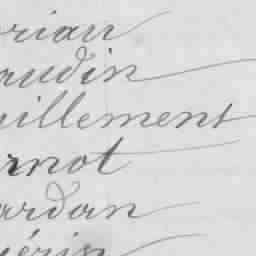 rian
audin
uillement
rnot
ardan
uérin